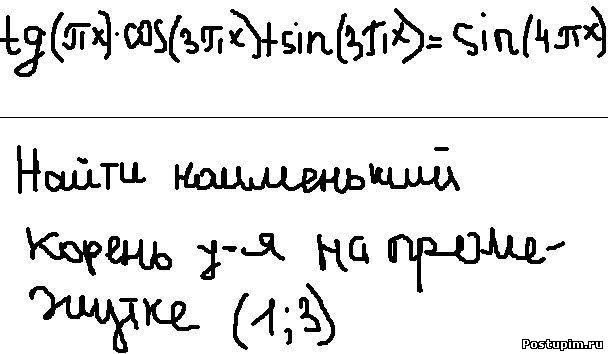 tg(πx)·cos(3πx)+sin(3πx)=sin(4πx)
Найти наименьший
корень у-я на проме-
жутке (1;3)
Postupim.ru